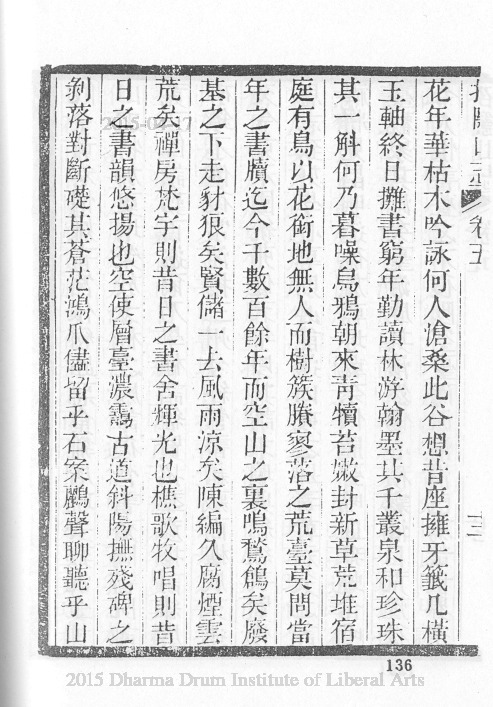 山志 卷五 十二
花年華枯木吟詠何人滄桑此谷想昔座擁牙籤几橫
玉軸終日攤書窮年勤讀林游翰墨其千叢泉和珍珠
其一斛何乃暮噪烏鴉朝來靑犢苔嫩封新草荒堆宿
庭有鳥以花銜地無人而樹簇賸寥落之荒臺莫問當
年之書牘迄今千數百餘年而空山之裏鳴鶖鶬矣廢
基之下走豺狼矣賢儲一去風雨涼矣陳編久腐煙雲
荒矣禪房梵宇則昔日之書舍輝光也樵歌牧唱則昔
日之書韻悠揚也空使層臺濃靄古道斜陽撫殘碑之
剝落對斷礎其蒼茫鴻爪儘留乎石案鸝聲聊聽乎山
136
2015 Dharma Drum Institute of Liberal Arts